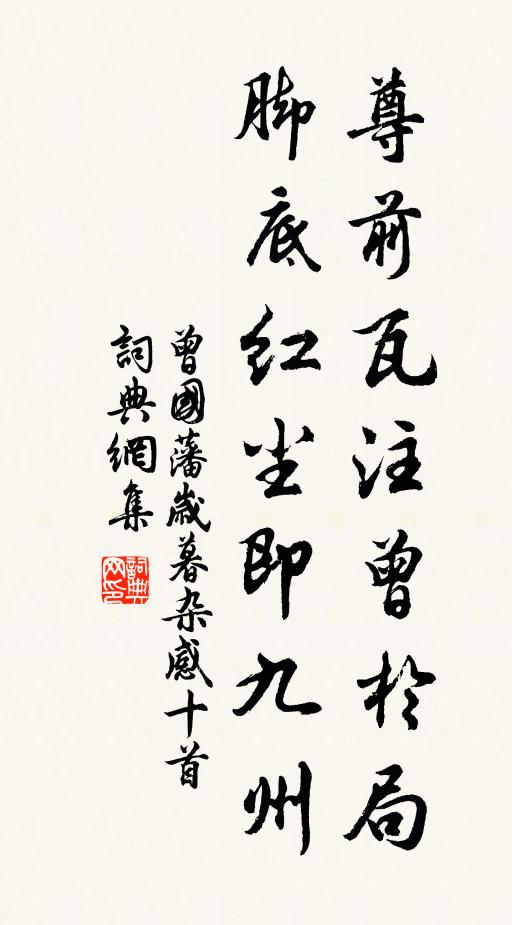 尊前瓦注曾於局
脚底红尘即九州
曾國藩歲暮杂感十首
詞典網集
詞典网印